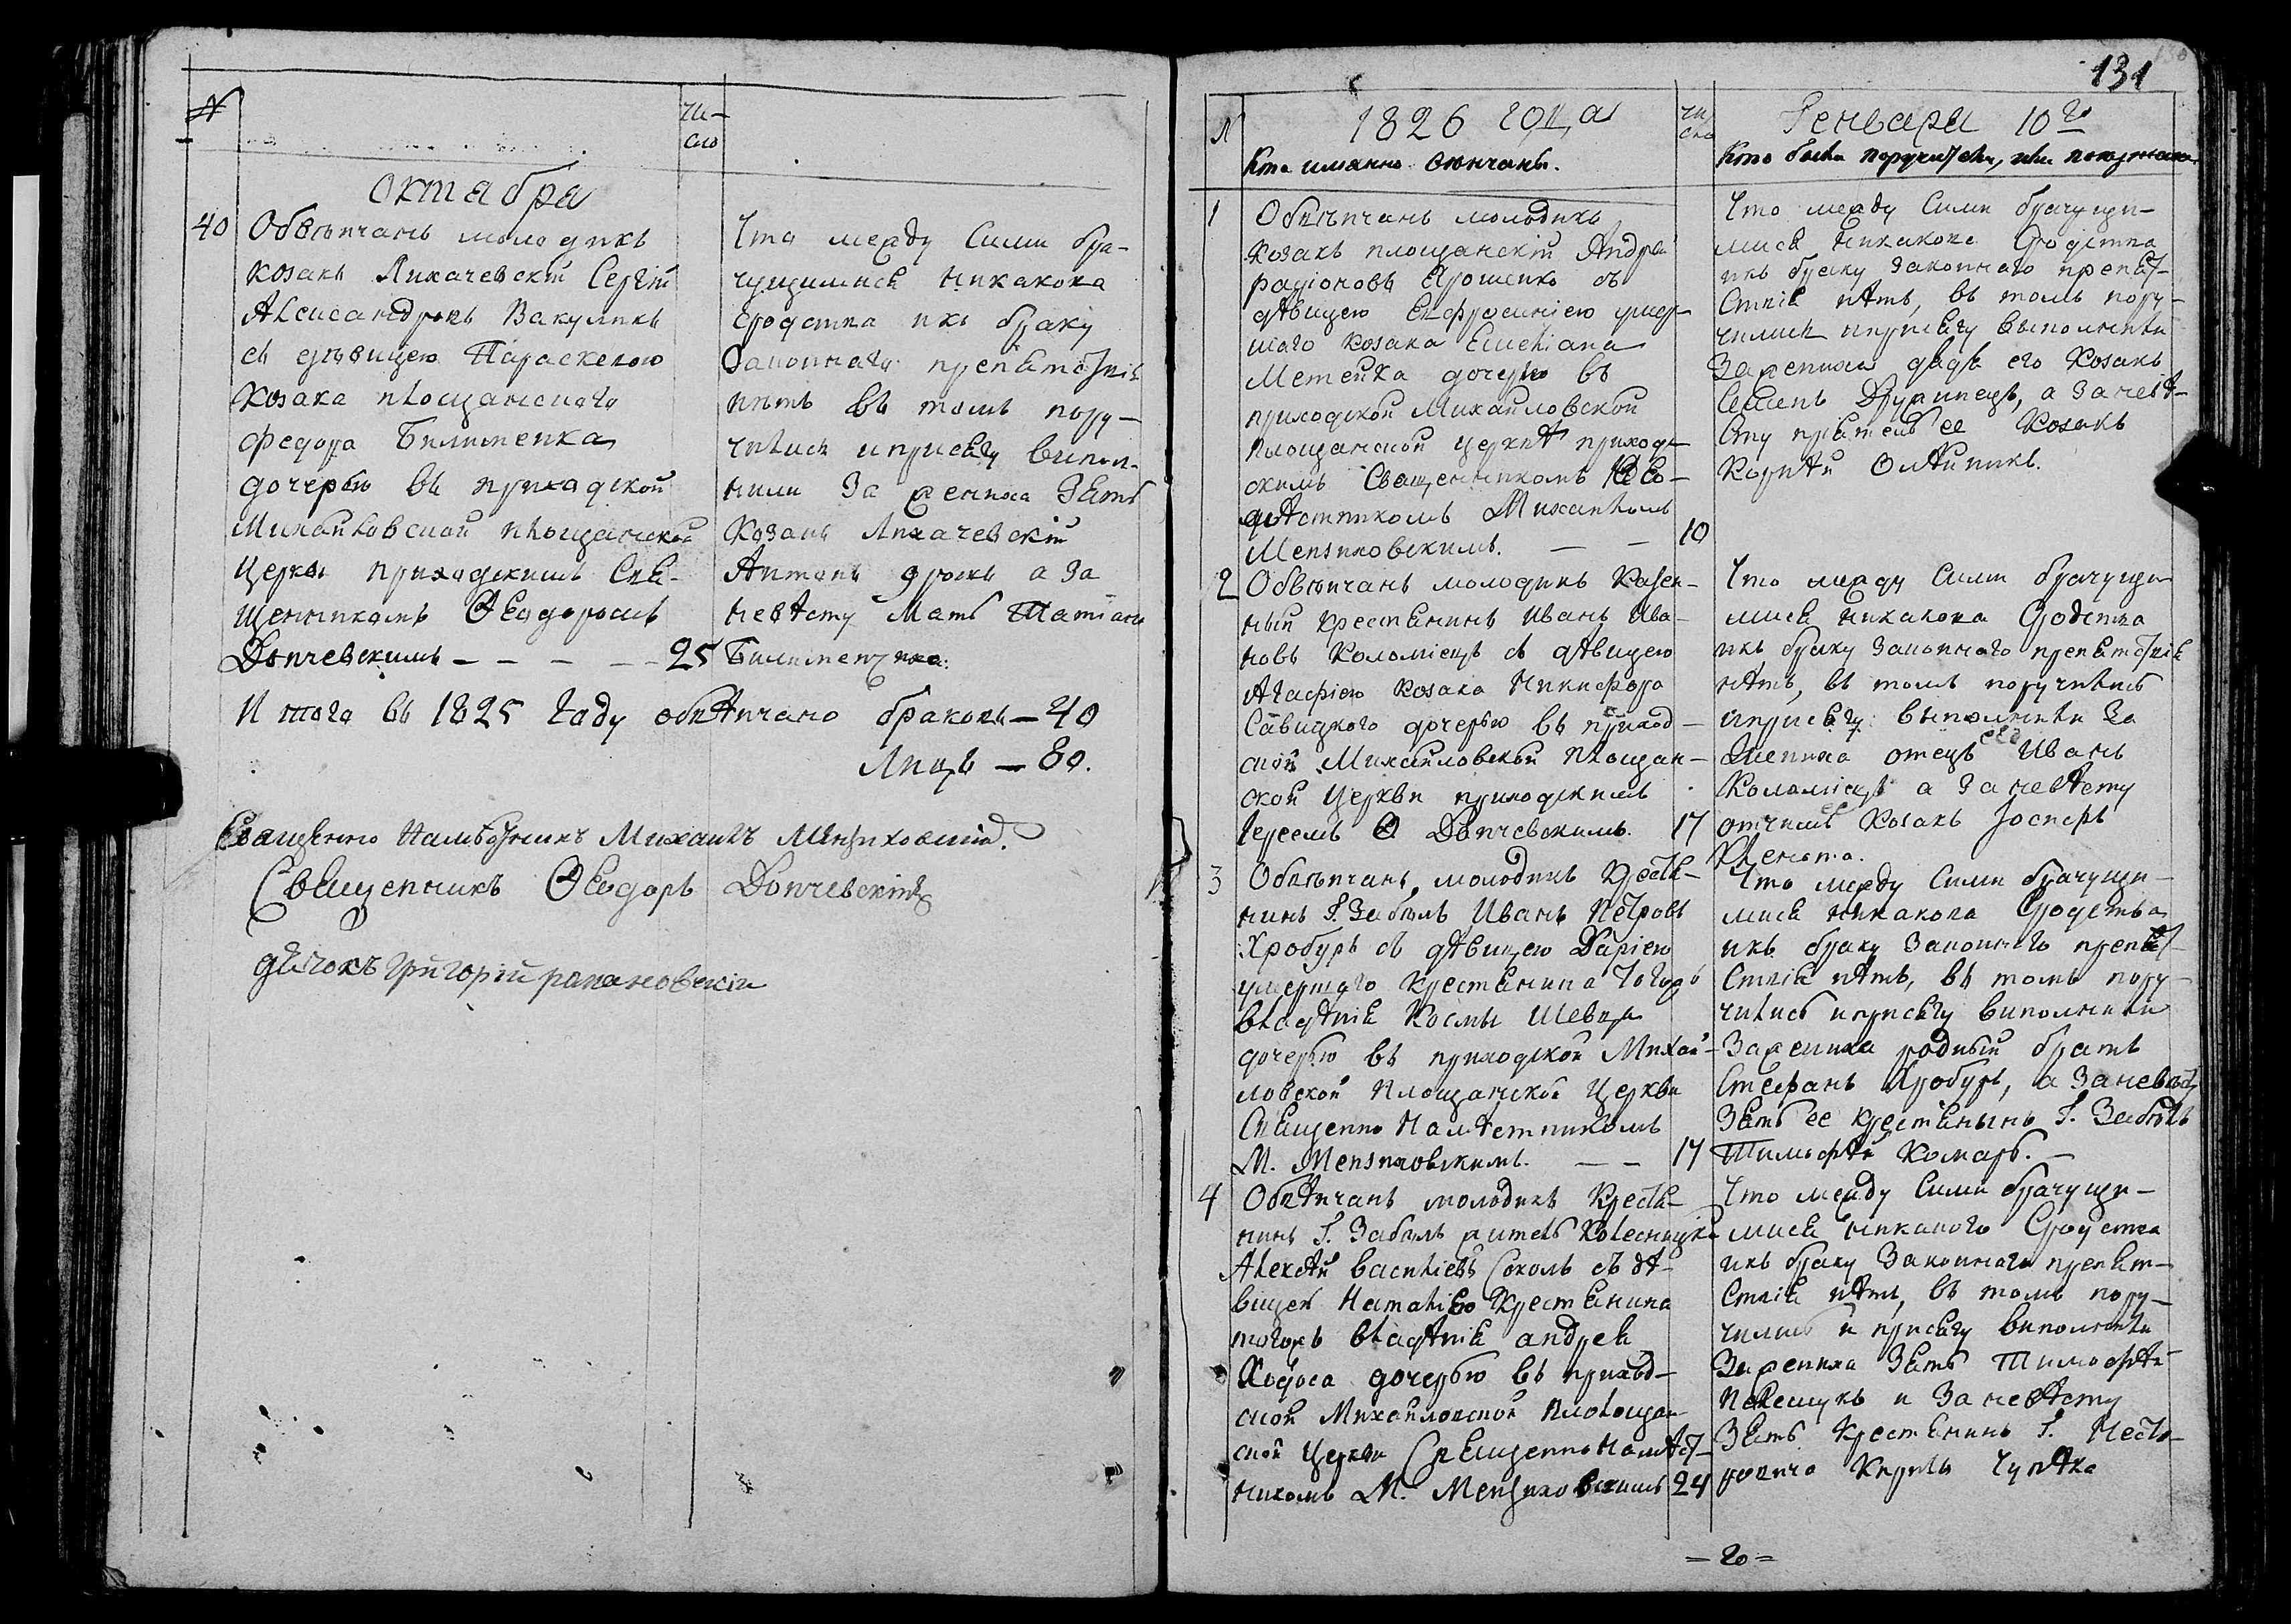 №
чи-
сло
октабра
40
Обвѣнчанъ молодикъ
козакъ Лихачевскій Сергій
Алексадровъ Вакуликъ
съ дѣвицею Параскевою
козака площанскаго
федора Билименка
дочерью въ приходской
Михайловской площанской
Церкви приходскимъ Свя-
щенникомъ Ѳеодоромъ
Дончевскимъ - - - - 25
Что между Сими бра-
чущимися никакова
сродства икъ браку
законнаго препятствія
нѣтъ въ томъ пору-
чились иприсягу випол-
нили За жениха Зять
Козакъ Лихачевскій
Антонъ а За
невѣсту Мать Татіана
Билименчиха.
И того въ 1825 году обвѣнчано браковъ - 40
Лицъ - 80.
Священно Намѣстникъ Михаилъ Мензиховскій.
Священникъ Ѳеодоръ Дончевскій
дячокъ григорій
131
130
№
1826 года
Кто имянно вѣнчаны.
чи
сло
Генваря 10го
Кто были поручители, или
1
Обвѣнчанъ молодикъ
козакъ площанскій Андрей
радіоновъ Ярошенко съ
дѣвицею Ефросиніею умер-
шаго козака Емеліана
Метейка дочерю въ
приходской Михайловской
Площанской церквѣ приход-
скимъ Священникомъ
Михаиломъ
Мензиховскимъ. - - 10
Что между Сими брачущи-
мися никакова Сродства
икъ браку законнаго препят-
ствія нѣтъ, въ томъ пору-
чились иприсягу выполнили
Зажениха дядя его Козакъ
Семенъ Дружинецъ, а Заневѣ-
сту пріятель ее Козакъ
Корнѣй Олѣйникъ.
2
Обвѣнчанъ молодикъ Казен-
ный крестянинъ Иванъ Ива-
новъ Коломіецъ съ дѣвицею
Агафіею козака Никифора
Савицкого дочерью въ приход-
ской Михайловской Площан-
ской Церкви приходскимъ
Іереемъ Ѳ Дончевскимъ. 17
Что между Сими брачущи
мися никакова Сродства
икъ браку законнаго препятствія
нѣтъ, въ томъ поручились
иприсягу выполнили За
жениха отецъ его Иванъ
Коломіецъ а Заневѣсту
отчимъ ея Козакъ Іосифъ
3
Обвѣнчанъ молодикъ крестя-
нинъ Г. Забѣлъ Иванъ Петровъ
Хробустъ съ дѣвицею Даріею
умершого крестянина тогожъ
владѣнія Космы Шевца
дочерью въ приходской Михай-
ловской Площанской Церкви
Священно Намѣстникомъ
М. Мензиховскимъ. - - 17
Что между Сими брачущи-
мися никакова Сродства
икъ браку законнаго препят-
ствія нѣтъ, въ томъ пору-
чились иприсягу виполнили
Зажениха родный братъ
Стефанъ Хробустъ, а Заневѣсту
Зять ее крестянынъ Г. Забѣлъ
Тимофѣй Комаръ. -
4
Обвѣнчанъ молодикъ Крестя-
нинъ Г. Забѣлъ житель Колесницкій
Алексѣй Василіевъ Соколъ съ дѣ-
вицей Наталіею Крестянина
тогожъ владѣнія андрея
Ходоса дочерью въ приход-
ской Михайловской Площан
ской Церкви Священно Намѣст-
никомъ М. Мензиховскимъ 24
Что между Сими брачущи-
мися никакого Сродства
икъ браку законнаго препят-
ствія нѣтъ, въ томъ пору-
чились и присягу виполнили
Зажениха Зять Тимофѣй
и Заневѣсту
Зять Крестянинъ Г.